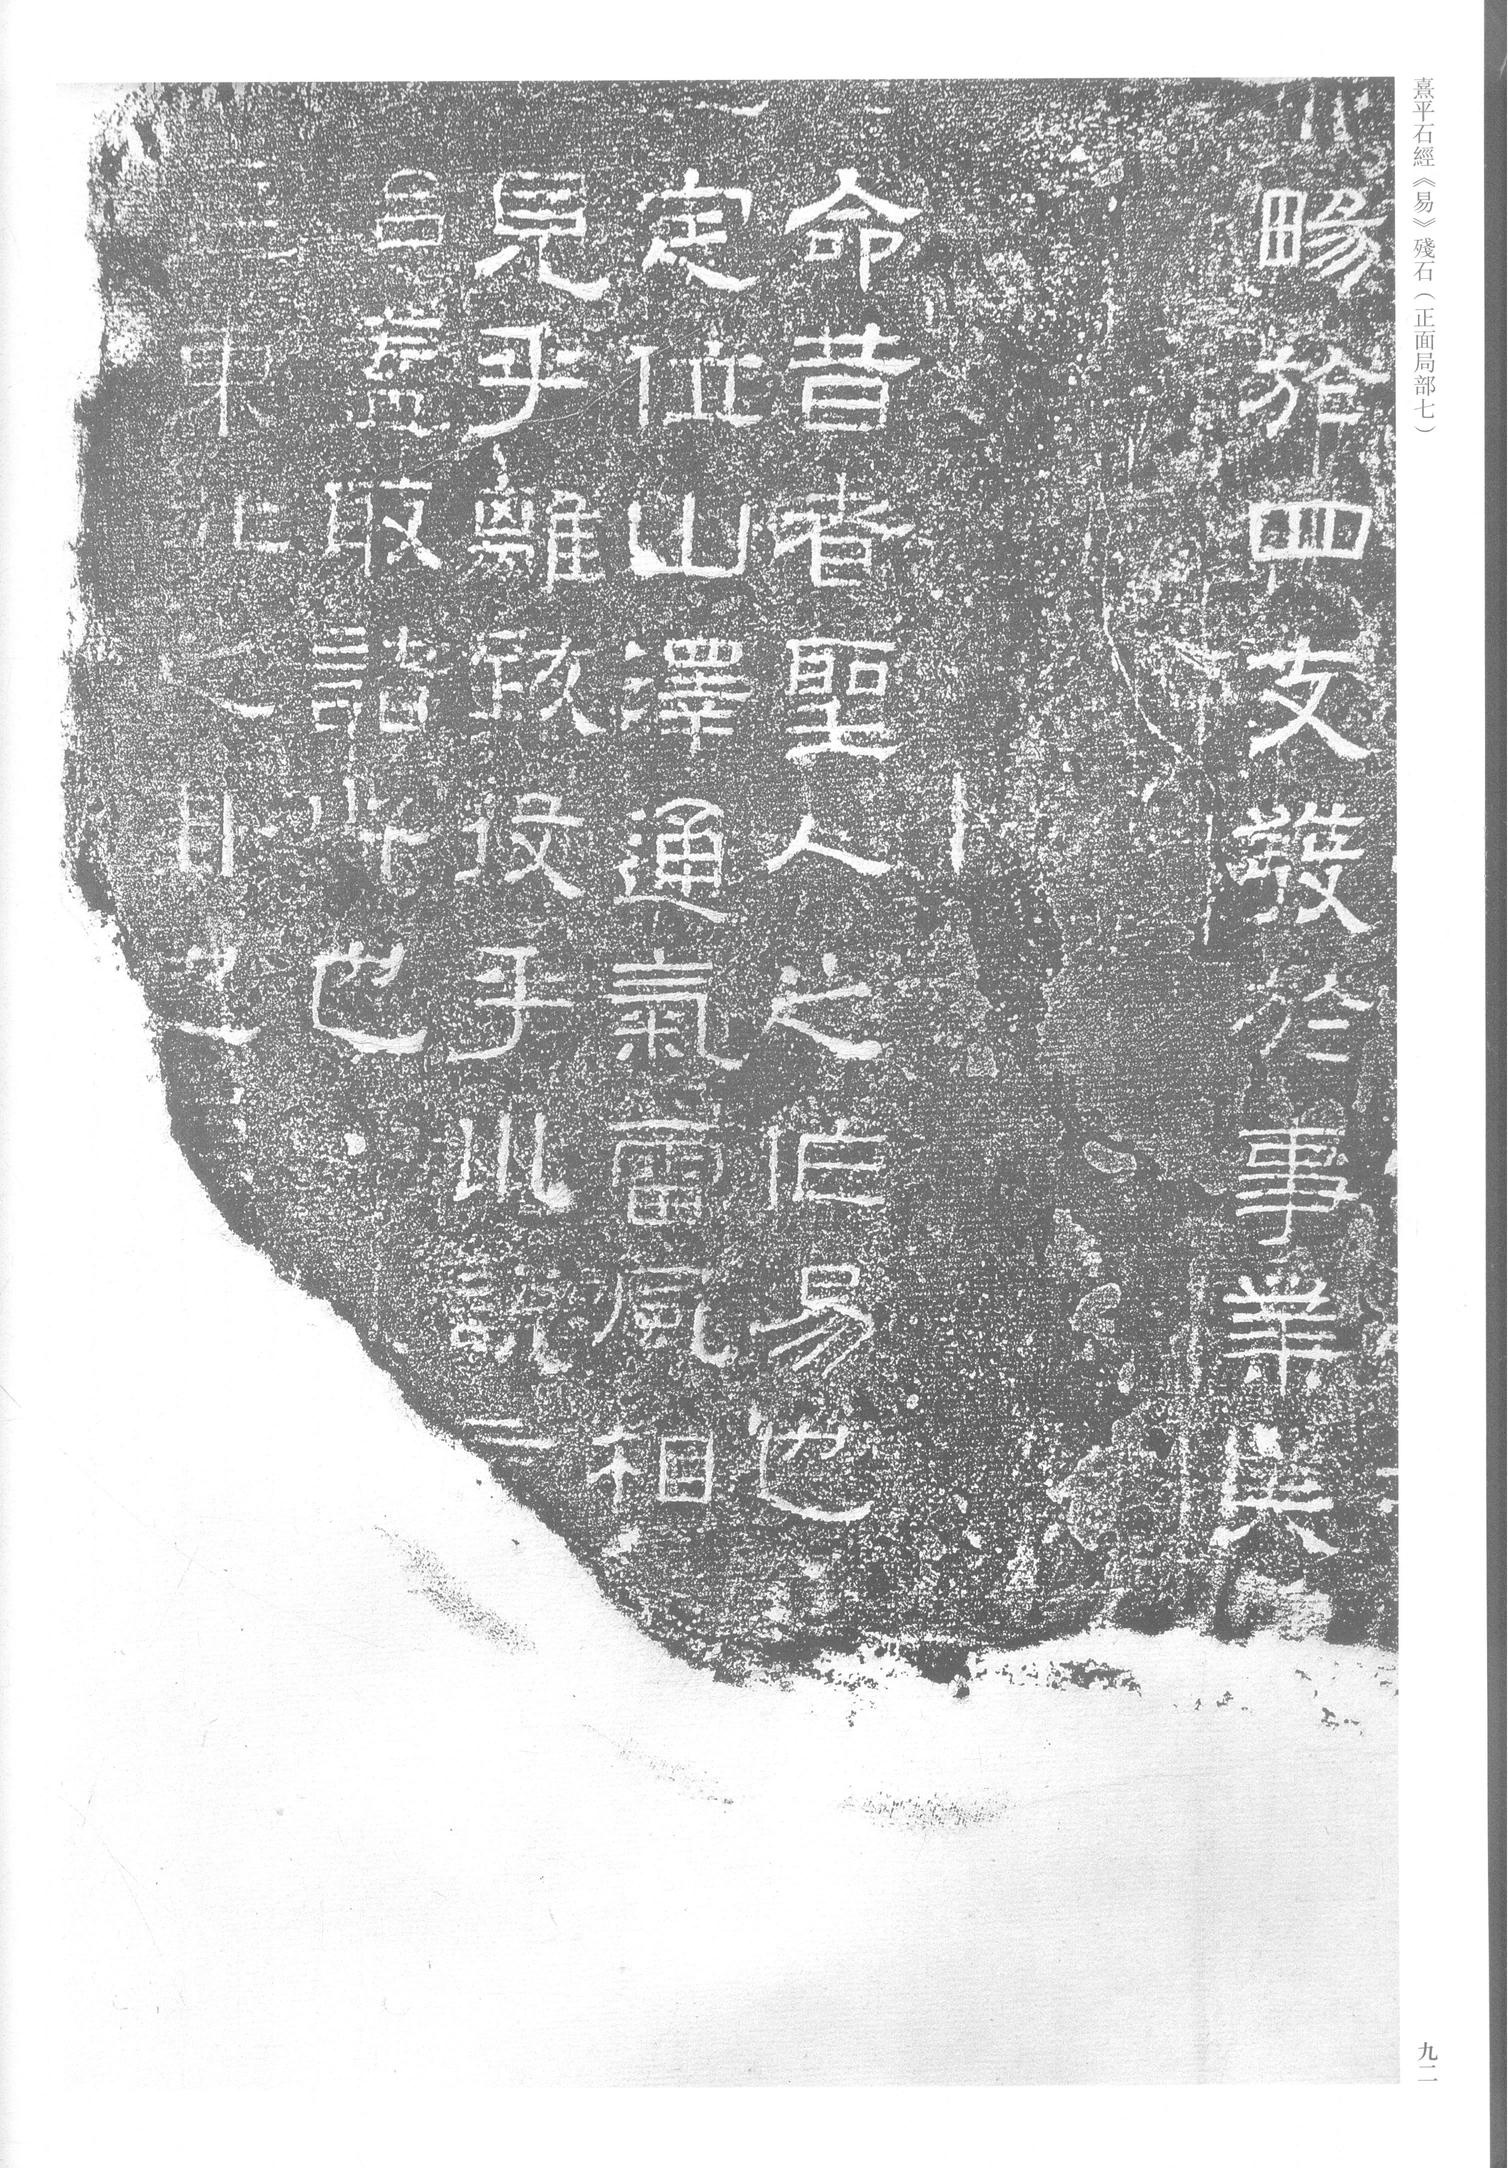 熹平石經《易》殘石（正面局部七）
暢於四支發於事業美
命昔者聖人之作易也
定位山澤通氣雷風相
見乎離致役乎川說
盖取諸也
之
九二